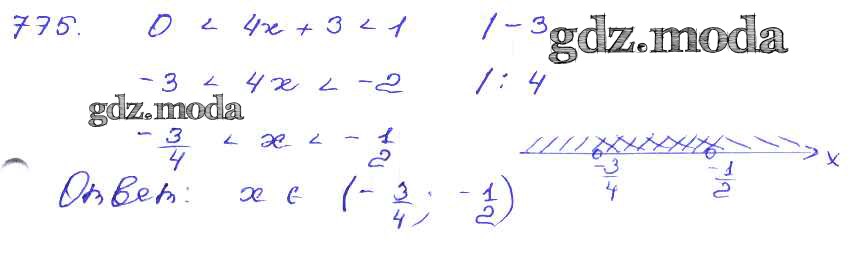 775. 0 < 4x + 3 < 1 / - 3
gdz.moda
-3 < 4x < -2 / : 4
gdz.moda
-3/4 < x < -1/2
-3/4 -1/2 x
Ответ: x ∈ (-3/4; -1/2)